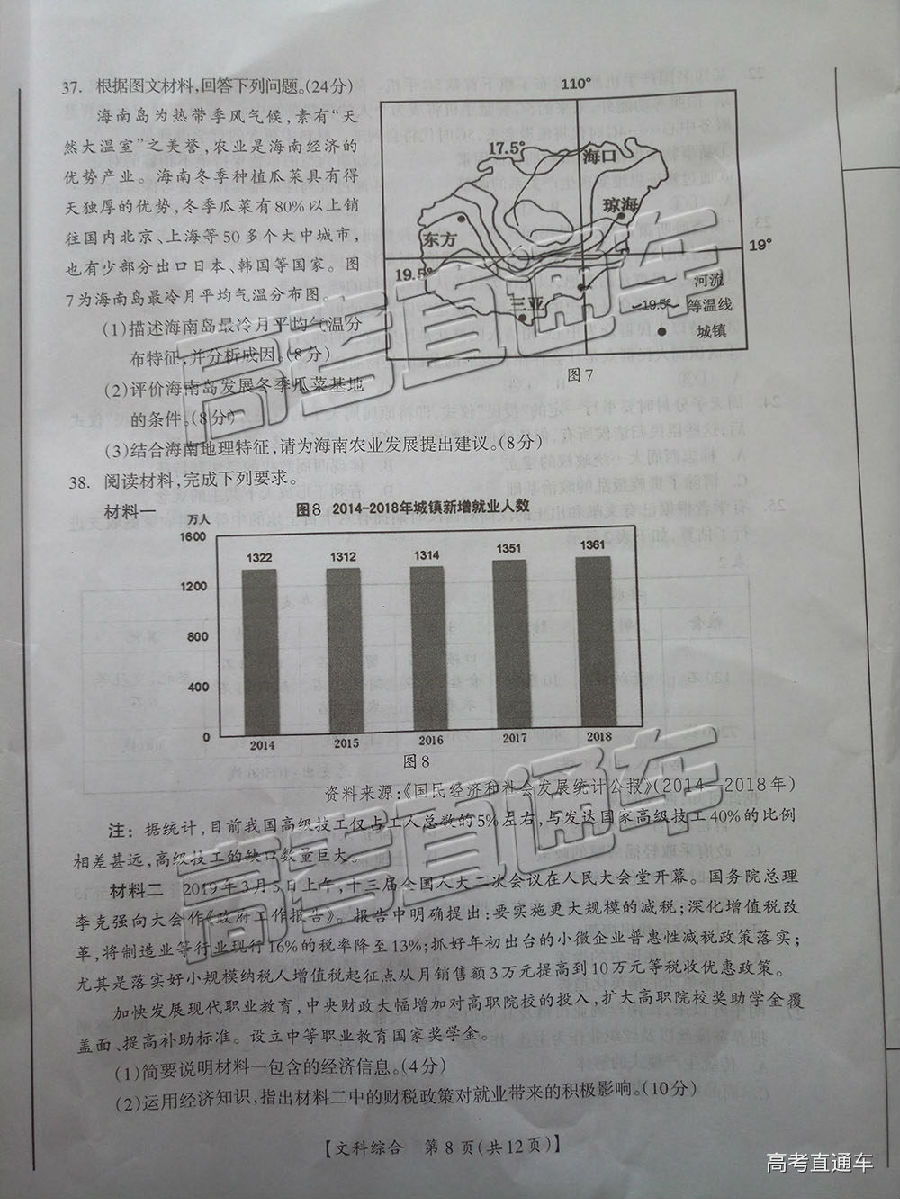 37. 根据图文材料,回答下列问题。(24分)
海南岛为热带季风气候,素有“天
然大温室”之美誉,农业是海南经济的
优势产业。海南冬季种植瓜菜具有得
天独厚的优势,冬季瓜菜有80%以上销
往国内北京、上海等50多个大中城市,
也有少部分出口日本、韩国等国家。图
7为海南岛最冷月平均气温分布图。
(1)描述海南岛最冷月平均气温分
布特征,并分析成因。(8分)
(2)评价海南岛发展冬季瓜菜基地
的条件。(8分)
110°
17.5°
海口
琼海
东方
19°
19.5°
三亚
河流
19.5 等温线
城镇
图7
(3)结合海南地理特征,请为海南农业发展提出建议。(8分)
38. 阅读材料,完成下列要求。
材料一
图8 2014-2018年城镇新增就业人数
万人
1600
1322 1312 1314 1351 1361
1200
800
400
0
2014 2015 2016 2017 2018
图8
资料来源:《国民经济和社会发展统计公报》(2014—2018年)
注: 据统计,目前我国高级技工仅占工人总数的5%左右,与发达国家高级技工40%的比例
相差甚远,高级技工的缺口数量巨大。
材料二 2019年3月5日上午,十三届全国人大二次会议在人民大会堂开幕。国务院总理
李克强向大会作《政府工作报告》。报告中明确提出:要实施更大规模的减税;深化增值税改
革,将制造业等行业现行16%的税率降至13%;抓好年初出台的小微企业普惠性减税政策落实;
尤其是落实好小规模纳税人增值税起征点从月销售额3万元提高到10万元等税收优惠政策。
加快发展现代职业教育,中央财政大幅增加对高职院校的投入,扩大高职院校奖助学金覆
盖面、提高补助标准。设立中等职业教育国家奖学金。
(1)简要说明材料一包含的经济信息。(4分)
(2)运用经济知识,指出材料二中的财税政策对就业带来的积极影响。(10分)
【文科综合 第8页(共12页)】
高考直通车
高考直通车
高考直通车